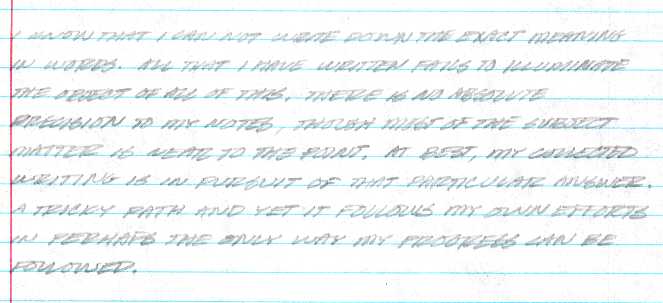 I KNOW THAT I CAN NOT WRITE DOWN THE EXACT MEANING
IN WORDS. ALL THAT I HAVE WRITTEN FAILS TO ILLUMINATE
THE OBJECT OF ALL OF THIS. THERE IS NO ABSOLUTE
PRECISION TO MY NOTES, THOUGH MOST OF THE SUBJECT
MATTER IS NEAR TO THE POINT. AT BEST, MY COLLECTED
WRITING IS IN PURSUIT OF THAT PARTICULAR ANSWER.
A TRICKY PATH AND YET IT FOLLOWS MY OWN EFFORTS
IN PERHAPS THE ONLY WAY MY PROGRESS CAN BE
FOLLOWED.